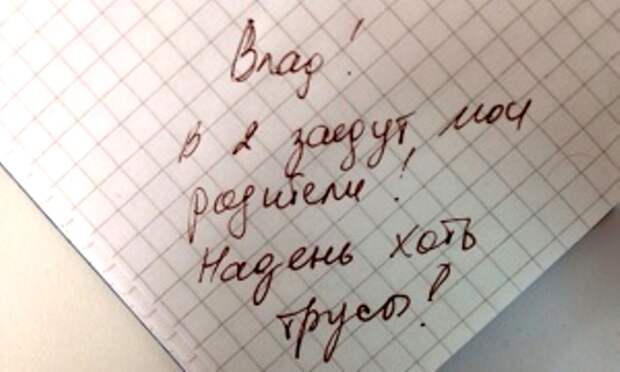 Влад!
в 2 заедут мои
родители!
Надень хоть
трусы!